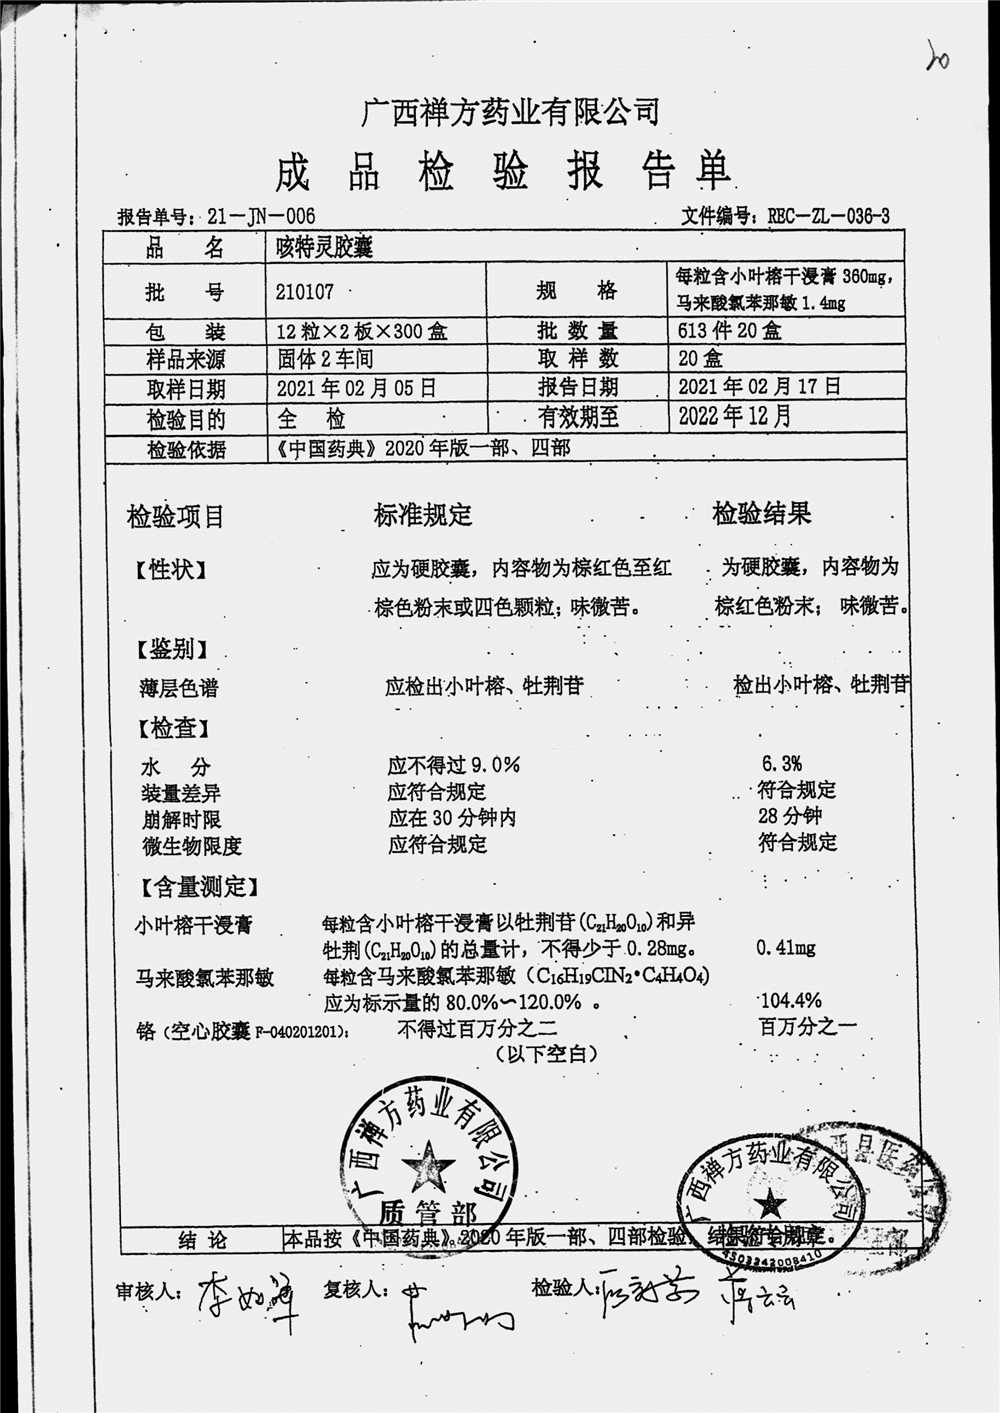 20
广西禅方药业有限公司
成品检验报告单
报告单号：21－JN－006 文件编号：REC－ZL－036-3
品 名 咳特灵胶囊
批 号 210107 规 格 每粒含小叶榕干浸膏 360mg，马来酸氯苯那敏 1.4mg
包 装 12 粒×2 板×300 盒 批 数 量 613 件 20 盒
样品来源 固体 2 车间 取 样 数 20 盒
取样日期 2021 年 02 月 05 日 报告日期 2021 年 02 月 17 日
检验目的 全 检 有效期至 2022 年 12 月
检验依据 《中国药典》2020 年版一部、四部
检验项目 标准规定 检验结果
【性状】 应为硬胶囊，内容物为棕红色至红 为硬胶囊，内容物为
棕色粉末或四色颗粒；味微苦。 棕红色粉末； 味微苦。
【鉴别】
薄层色谱 应检出小叶榕、牡荆苷 检出小叶榕、牡荆苷
【检查】
水 分 应不得过 9.0% 6.3%
装量差异 应符合规定 符合规定
崩解时限 应在 30 分钟内 28 分钟
微生物限度 应符合规定 符合规定
【含量测定】
小叶榕干浸膏 每粒含小叶榕干浸膏以牡荆苷(C₂₁H₂₀O₁₀)和异
牡荆(C₂₁H₂₀O₁₀)的总量计，不得少于 0.28mg。 0.41mg
马来酸氯苯那敏 每粒含马来酸氯苯那敏（C₁₆H₁₉ClN₂•C₄H₄O₄)
应为标示量的 80.0%～120.0% 。 104.4%
铬（空心胶囊 F-040201201）： 不得过百万分之二 百万分之一
（以下空白）
广西禅方药业有限公司
质管部
广西禅方药业有限公司
4503242008410
西县医药
结 论 本品按《中国药典》2020 年版一部、四部检验，结果符合规定。
审核人： 复核人： 检验人：